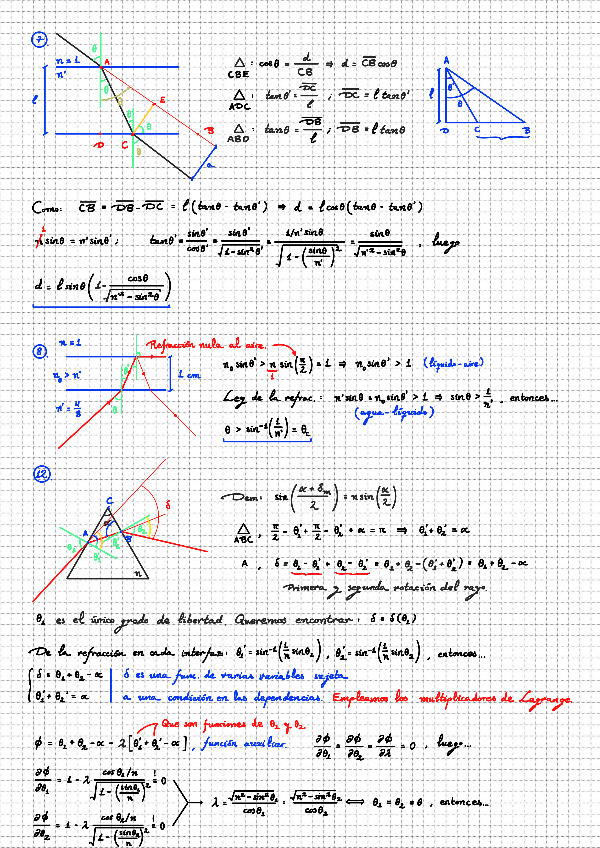 7
n = 1
n'
θ
A
θ'
θ
l
E
D
C
B
d
△ CBE : cosθ = d / CB ⇒ d = CB cosθ
△ ADC : tanθ' = DC / l ; DC = l tanθ'
△ ABD : tanθ = DB / l ; DB = l tanθ
A
θ'
θ
l
D
C
B
Como: CB = DB - DC = l (tanθ - tanθ') ⇒ d = l cosθ (tanθ - tanθ')
n sinθ = n' sinθ' ; tanθ' = sinθ' / cosθ' = sinθ' / √(1 - sin²θ') = 1/n' sinθ / √(1 - (sinθ / n')²) = sinθ / √(n'² - sin²θ) , luego
d = l sinθ (1 - cosθ / √(n'² - sin²θ))
8
n = 1
Refracción nula al aire.
n₀ > n'
n' = 4/3
1 cm
n₀ sinθ' > n sin(π/2) = 1 ⇒ n₀ sinθ' > 1 (líquido-aire)
1
Ley de la refrac.: n' sinθ = n₀ sinθ' > 1 ⇒ sinθ > 1/n' , entonces...
(agua-líquido)
θ > sin⁻¹(1/n') = θ_L
12
C
α
δ
A
B
θ₁
θ₁'
θ₂'
θ₂
n
Dem: sin((α + δₘ)/2) = n sin(α/2)
△ ABC , π/2 - θ₁' + π/2 - θ₂' + α = π ⇒ θ₁' + θ₂' = α
A , δ = θ₁ - θ₁' + θ₂ - θ₂' = θ₁ + θ₂ - (θ₁' + θ₂') = θ₁ + θ₂ - α
Primera y segunda rotación del rayo.
θ₁ es el único grado de libertad. Queremos encontrar : δ = δ(θ₁)
De la refracción en cada interfaz: θ₁' = sin⁻¹(1/n sinθ₁) , θ₂' = sin⁻¹(1/n sinθ₂) , entonces...
δ = θ₁ + θ₂ - α | δ es una func. de varias variables sujeta
θ₁' + θ₂' = α | a una condición en las dependencias. Empleamos los multiplicadores de Lagrange.
Que son funciones de θ₁ y θ₂
φ = θ₁ + θ₂ - α - λ [θ₁' + θ₂' - α] , función auxiliar. ∂φ/∂θ₁ = ∂φ/∂θ₂ = ∂φ/∂λ = 0 , luego...
∂φ/∂θ₁ = 1 - λ cosθ₁/n / √(1 - (sinθ₁/n)²) = 0
λ = √(n² - sin²θ₁) / cosθ₁ = √(n² - sin²θ₂) / cosθ₂ ⟺ θ₁ = θ₂ = θ , entonces...
∂φ/∂θ₂ = 1 - λ cosθ₂/n / √(1 - (sinθ₂/n)²) = 0